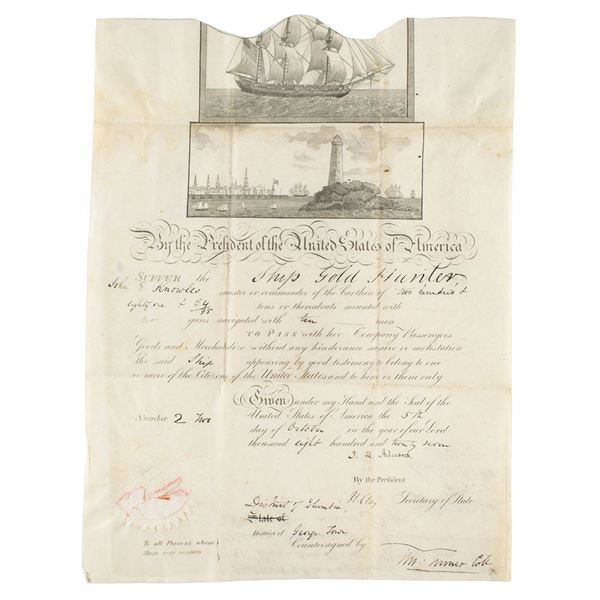 By the President of the United States of America
SUFFER the Ship Gold Hunter,
John E Knowles master or commander of the burthen of two hundred &
eighty one & 84/95 tons or thereabouts mounted with
no guns navigated with ten men
TO PASS with her Company Passengers
Goods and Merchandize without any hinderance seisure or molestation
the said Ship appearing by good testimony to belong to one
or more of the Citizens of the United States and to him or them only
Given under my Hand and the Seal of the
Number 2 Two
United States of America the 5th
day of October in the year of our Lord
thousand eight hundred and twenty seven
J. Q. Adams
By the President
H Clay Secretary of State
District of Columbia
State of
District of George Town
Countersigned by
To all Persons whom
these may concern
Turner Coll